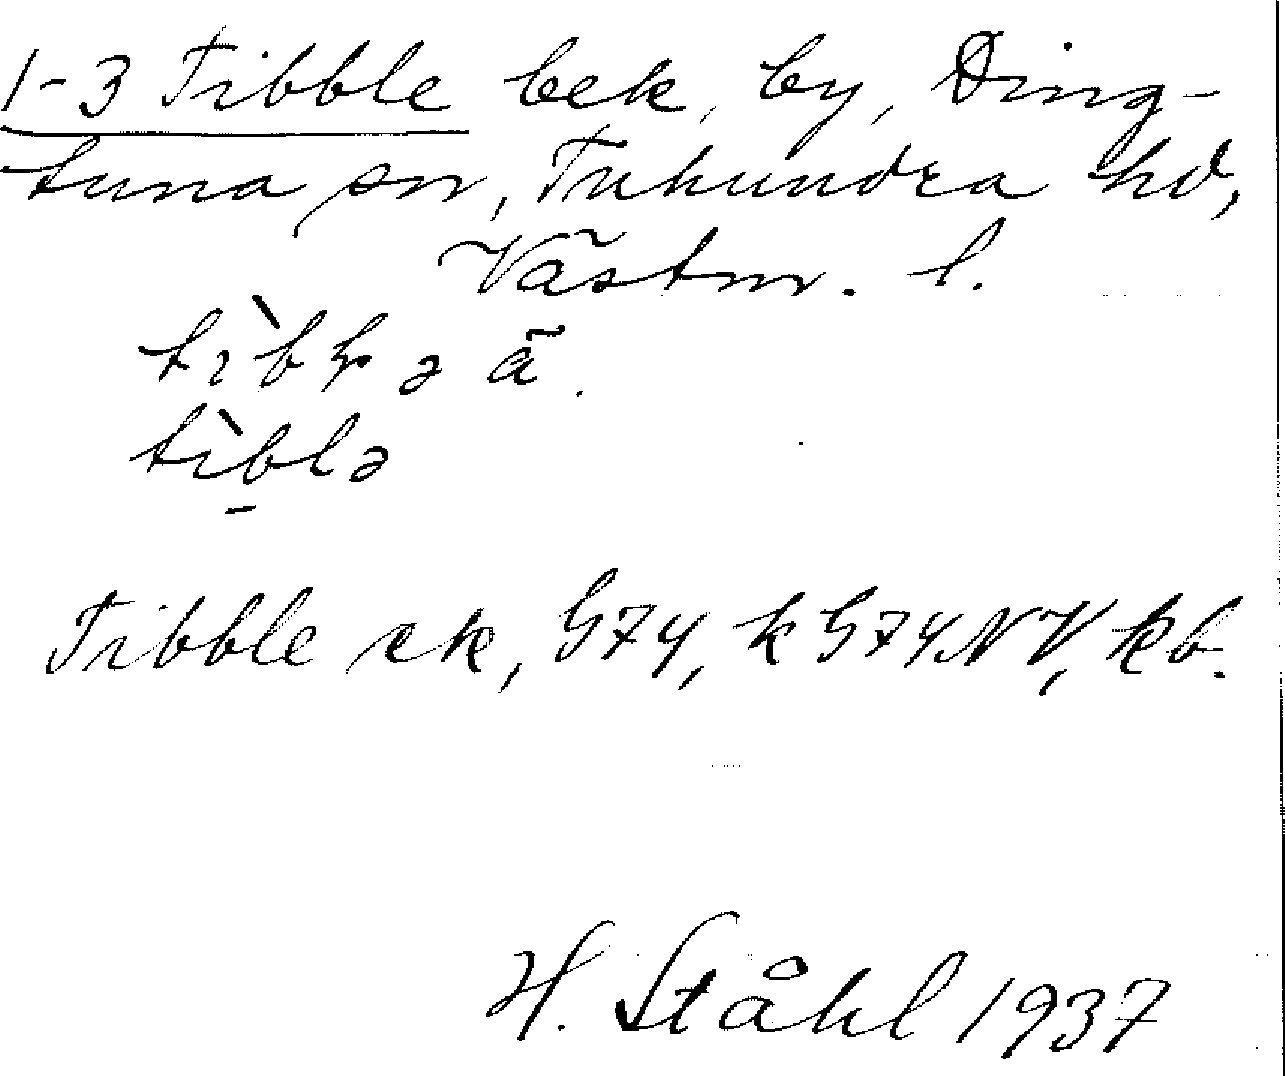 1-3 Tibble bek. by, Ding-
tuna sn, Tuhundra hd,
Västm. l.
tìbḷə ä.
tìblə
Tibble ek, G74, k G74NV, kb.
H. Ståhl 1937